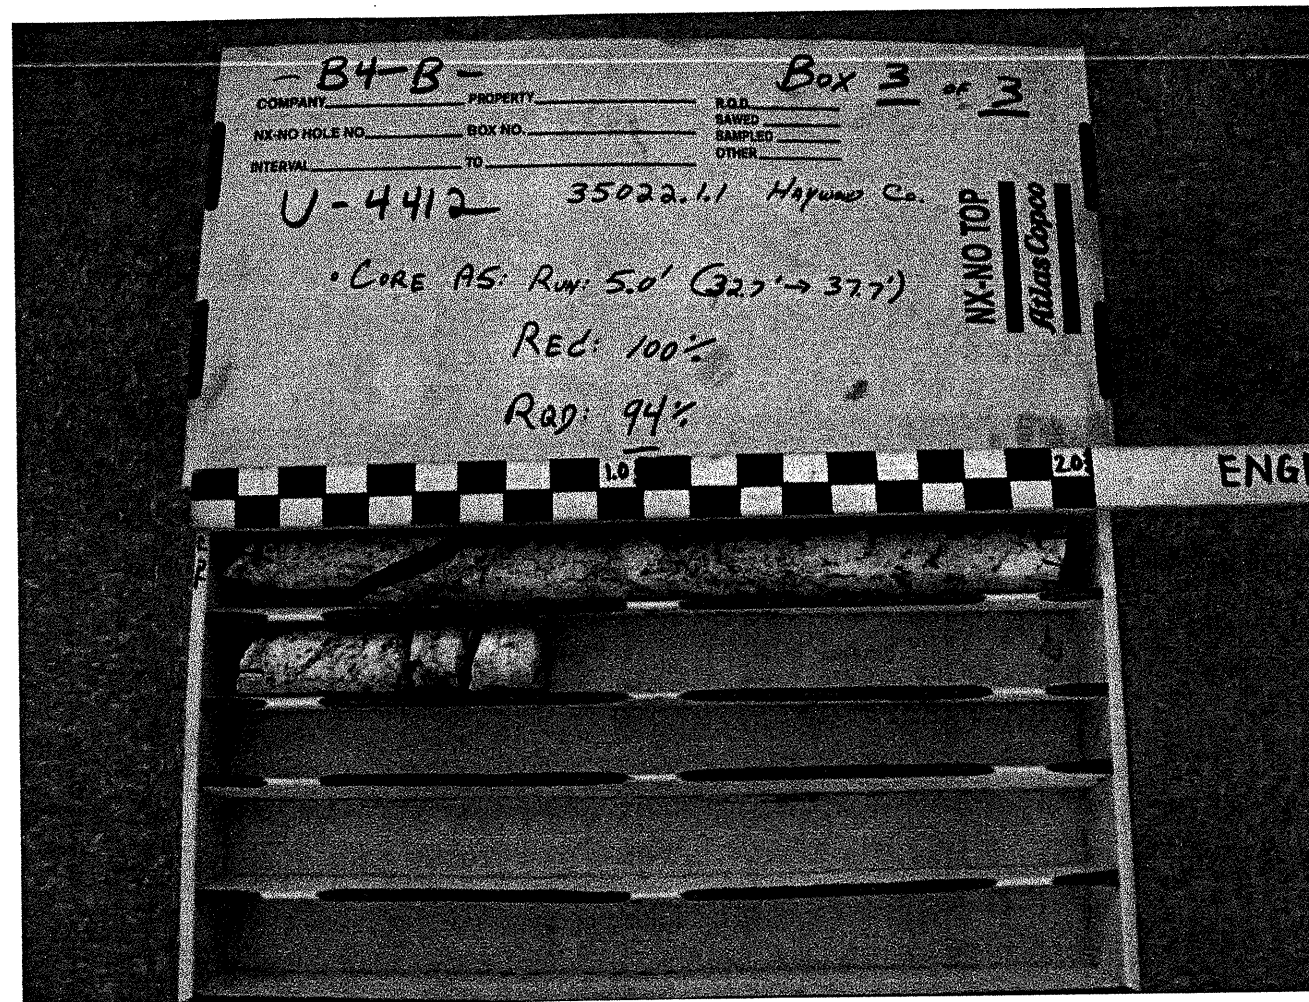 - B4-B -
Box 3 of 3
COMPANY PROPERTY
R.Q.D.
NX-NO HOLE NO. BOX NO.
SAWED
SAMPLED
INTERVAL TO
OTHER
U-4412 35022.1.1 Haywood Co.
• CORE A5: RUN: 5.0' (32.7' → 37.7')
REC: 100%
RQD: 94%
NX-NO TOP
Atlas Copco
1.0
2.0
ENGI